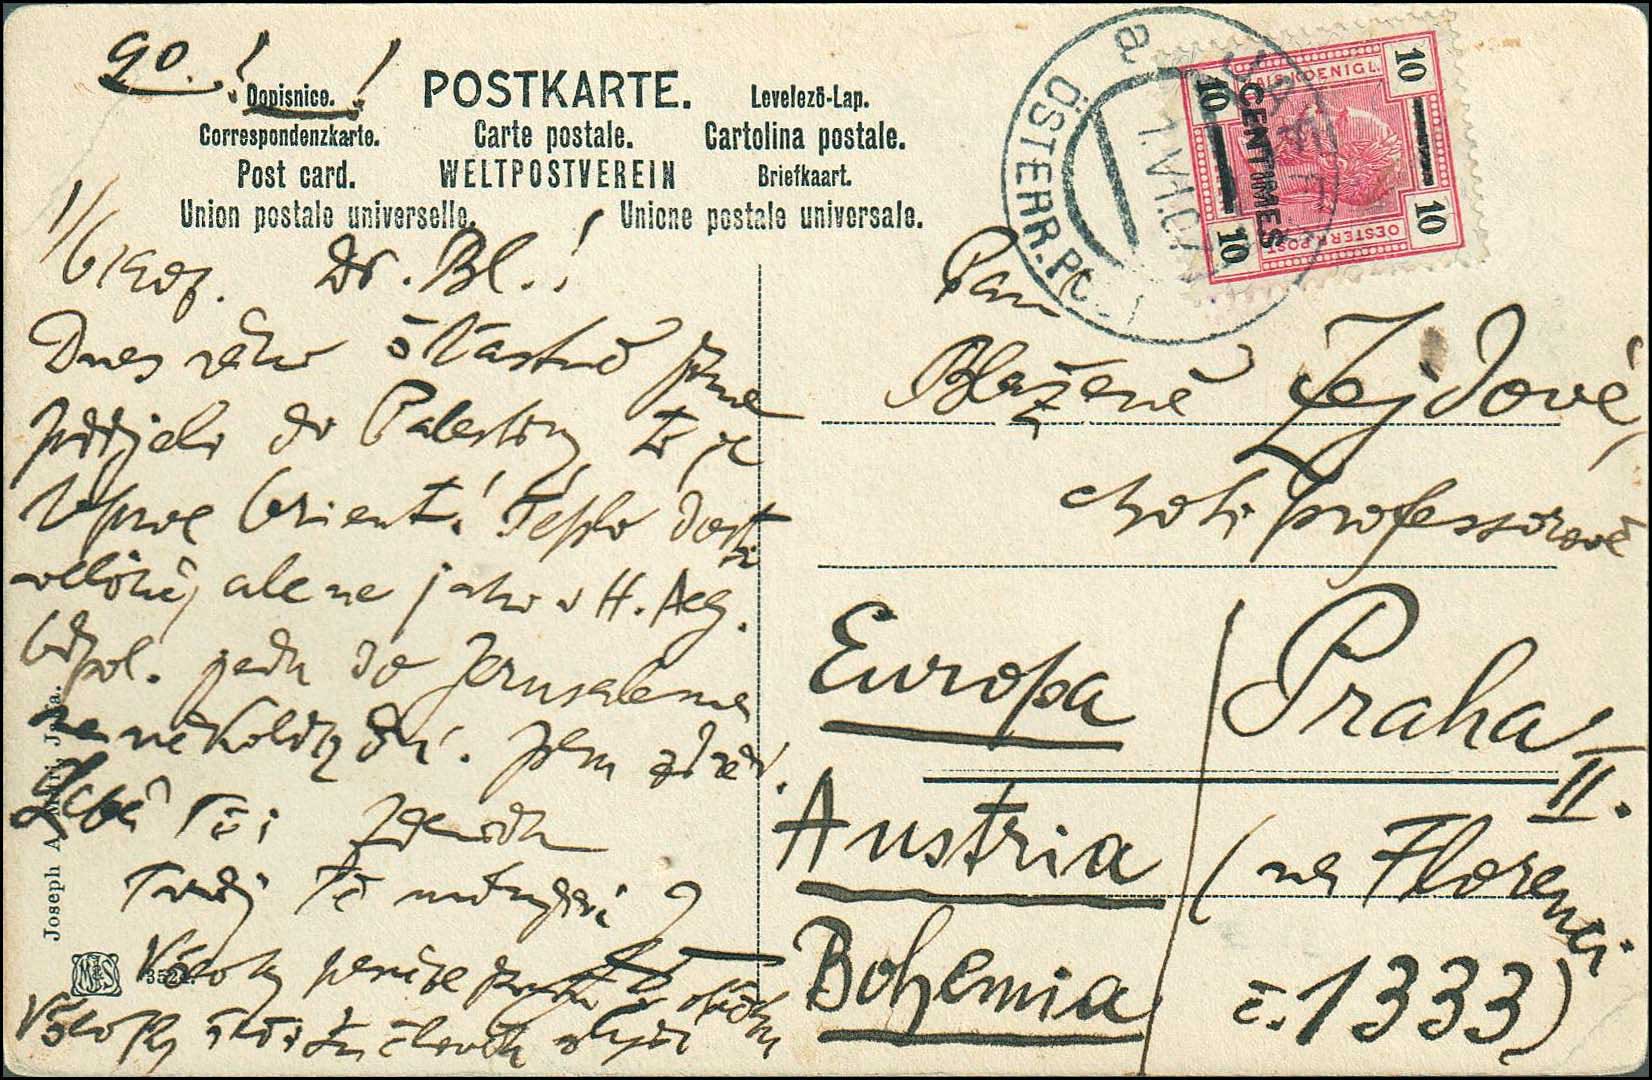 90.!
Dopisnice.
POSTKARTE.
Levelező-Lap.
Correspondenzkarte.
Carte postale.
Cartolina postale.
Post card.
WELTPOSTVEREIN
Briefkaart.
Union postale universelle.
Unione postale universale.
a
ÖSTERR. POST
1. VI. 07
KAIS. KOENIGL.
10 10
10 CENTIMES 10
OESTERR. POST
1/6 1907. Dr. Bl.!
Dnes ráno šťastně jsme
přijeli do Palestiny to je
úplně Orient! Teplo dosti
veliké, ale ne jako v H. Aeg.
Odpol. jedu do Jerusalema
na několik dní. Jsem zdráv.
Líbá Tě Zdeněk
Tvrdý Tě
Všecky peníze
Všecky
Joseph A.
3521.
Paní
Blažena Zejdové,
choti professorově
Europa
Praha II.
Austria
(na Florenci
Bohemia
č. 1333)